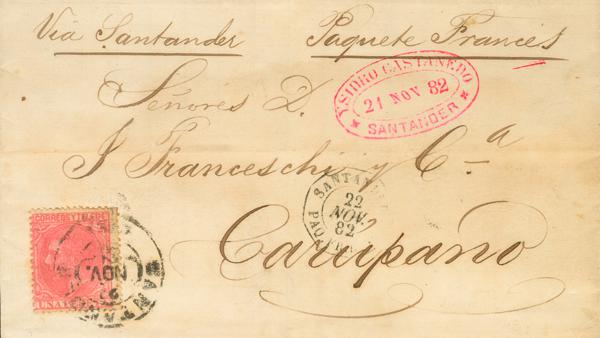 Via Santander Paquete Francés
YSIDRO CASTANEDO
21 NOV 82
SANTANDER
Señores D.
J Franceschi y Cª
SANTAN
22
NOV.
82
PAQUE
Carúpano
CORREOS Y
NOV.
SANTAN
UNA